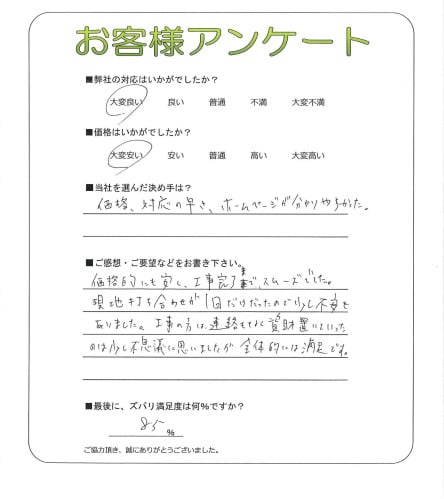 お客様アンケート
■弊社の対応はいかがでしたか？
大変良い 良い 普通 不満 大変不満
■価格はいかがでしたか？
大変安い 安い 普通 高い 大変高い
■当社を選んだ決め手は？
価格、対応の早さ、ホームページが分かりやすかった。
■ご感想・ご要望などをお書き下さい。
価格的にも安し、工事完了まで、スムーズでした。
現地打ち合わせが1回だけだったので少し不安も
ありました。工事の方は、連絡もなく資財置いていった
のは少し不思議に思いましたが全体的には満足です。
■最後に、ズバリ満足度は何%ですか？
85%
ご協力頂き、誠にありがとうございました。